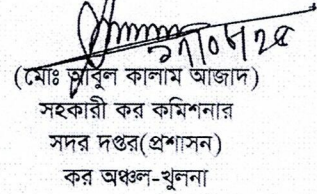 (মোঃ আবুল কালাম আজাদ)
সহকারী কর কমিশনার
সদর দপ্তর(প্রশাসন)
কর অঞ্চল-খুলনা